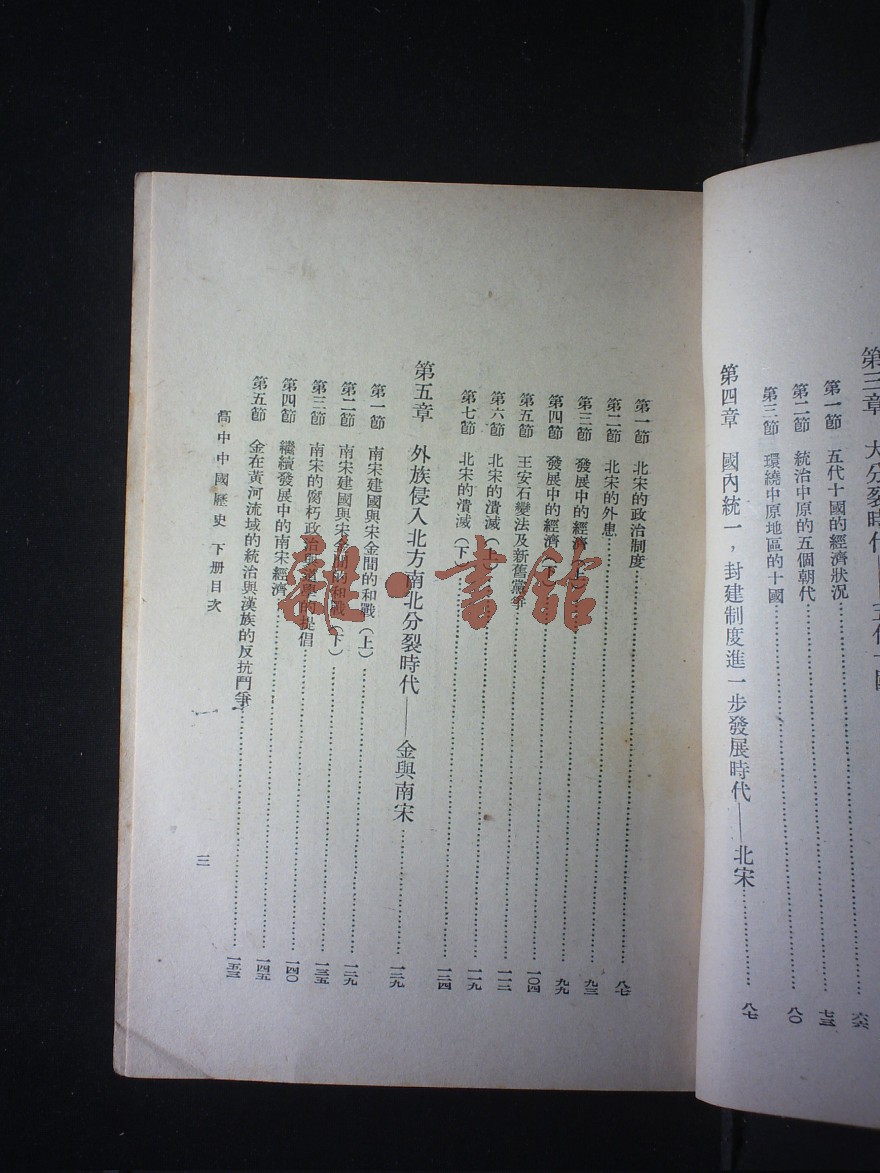 第三章 大分裂時代——五代十國
第一節 五代十國的經濟狀況……六六
第二節 統治中原的五個朝代……七三
第三節 環繞中原地區的十國……八〇
第四章 國內統一，封建制度進一步發展時代——北宋……八七
第一節 北宋的政治制度……八七
第二節 北宋的外患……九三
第三節 發展中的經濟（上）……九九
第四節 發展中的經濟（下）……一〇四
第五節 王安石變法及新舊黨爭……一一二
第六節 北宋的潰滅（上）……一一九
第七節 北宋的潰滅（下）……一二四
第五章 外族侵入北方南北分裂時代——金與南宋……一二九
第一節 南宋建國與宋金間的和戰（上）……一二九
第二節 南宋建國與宋金間的和戰（下）……一三五
第三節 南宋的腐朽政治與道學的提倡……一四〇
第四節 繼續發展中的南宋經濟……一四五
第五節 金在黃河流域的統治與漢族的反抗鬥爭……一五三
高中中國歷史 下册目次
三
雜·書館